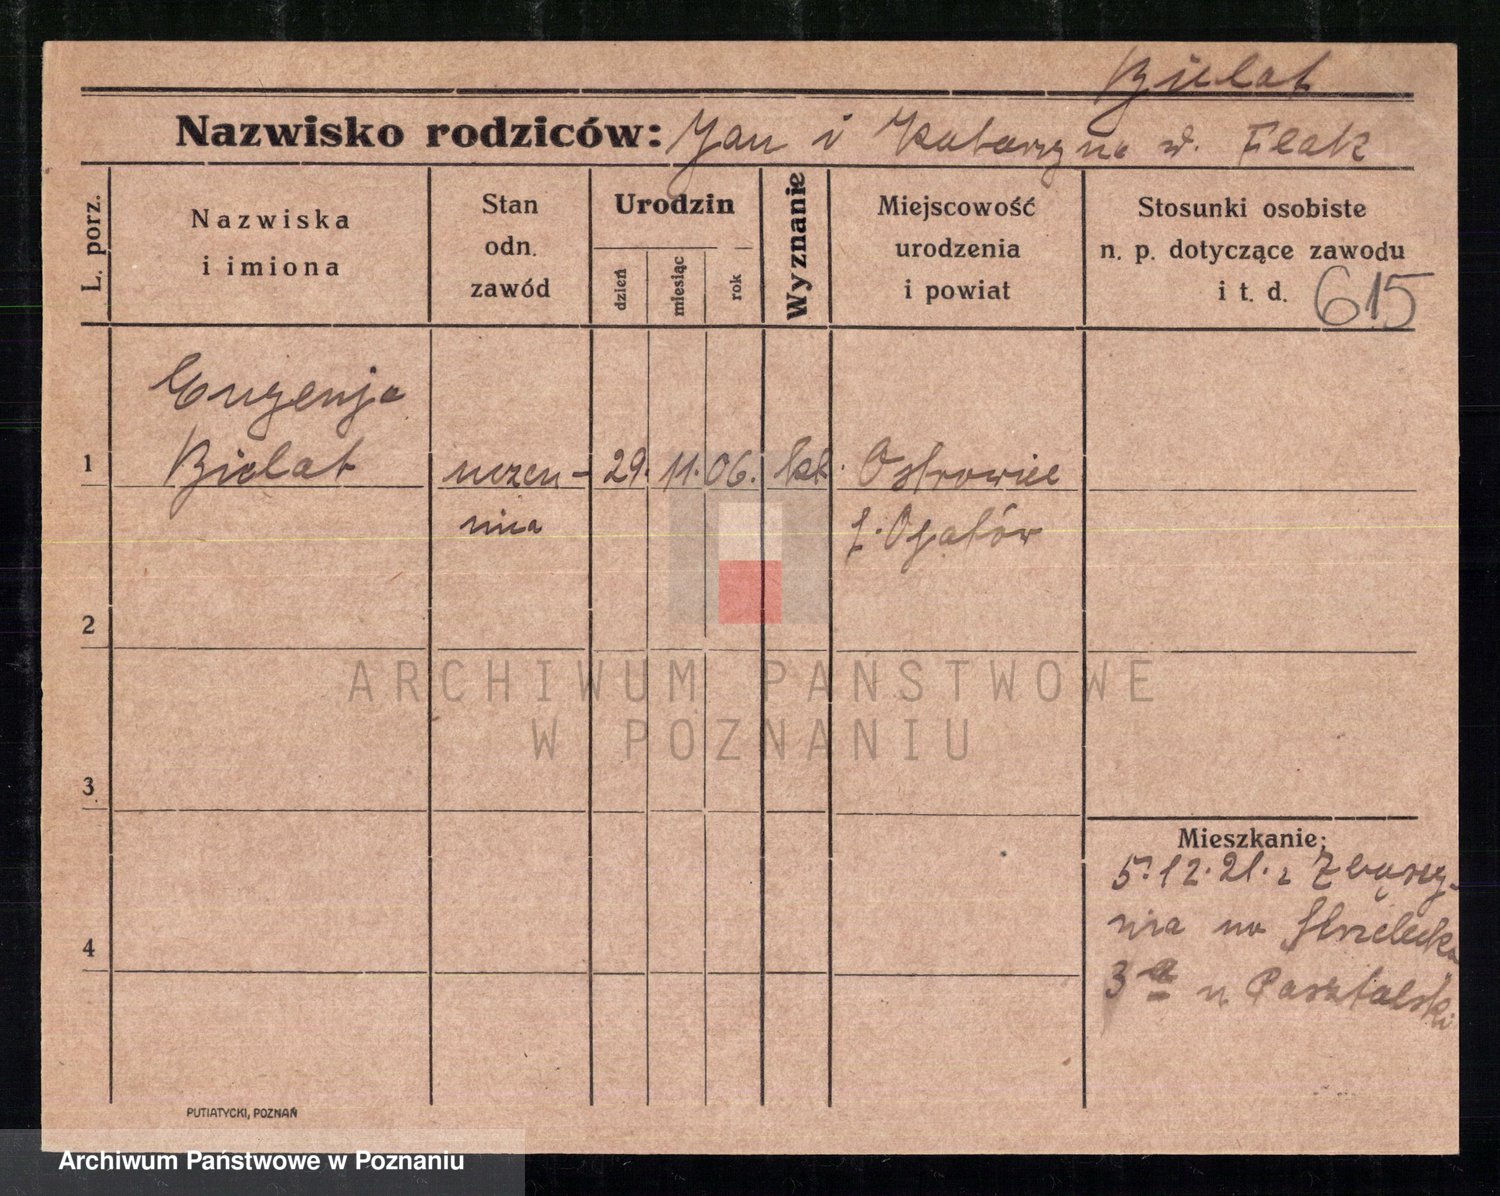 Bielat
Nazwisko rodziców: Jan i Katarzyna d. Flak
L. porz.
Nazwiska
i imiona
Stan
odn.
zawód
Urodzin
dzień
miesiąc
rok
Wyznanie
Miejscowość
urodzenia
i powiat
Stosunki osobiste
n. p. dotyczące zawodu
i t. d. 615
Eugenja
1 Bielat uczen- 29. 11. 06. kat. Ostrowiec
nica Opatów
2
3
4
Mieszkanie;
5.12.21. z Zbąszy-
nia na Strzelecka
3 a u Pasztalski
PUTIATYCKI, POZNAŃ
ARCHIWUM PAŃSTWOWE
W POZNANIU
Archiwum Państwowe w Poznaniu